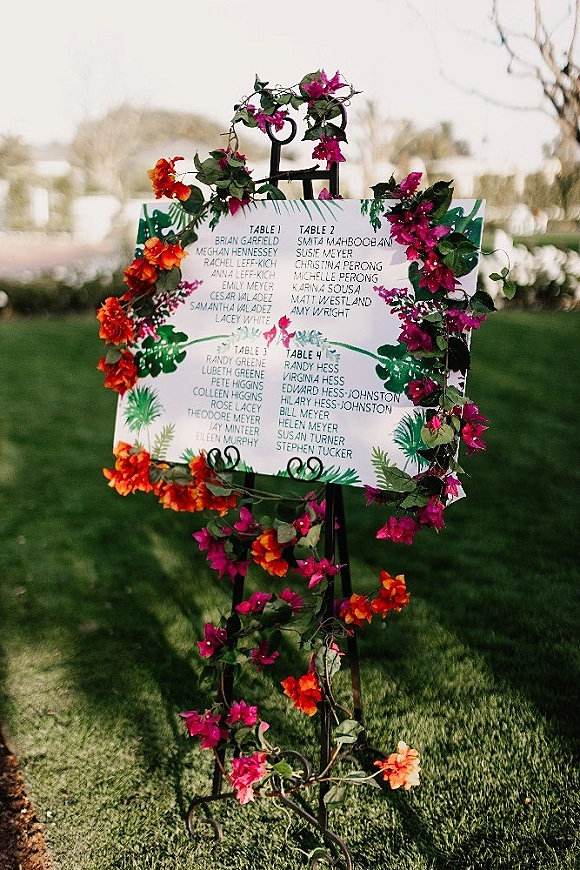 TABLE 1
BRIAN GARFIELD
MEGHAN HENNESSEY
RACHEL LEFF-KICH
ANNA LEFF-KICH
EMILY MEYER
CESAR VALADEZ
SAMANTHA VALADEZ
LACEY WHITE
TABLE 2
SMITA MAHBOOBANI
SUSIE MEYER
CHRISTINA PERONG
MICHELLE PERONG
KARINA SOUSA
MATT WESTLAND
AMY WRIGHT
TABLE 3
RANDY GREENE
LUBETH GREENE
PETE HIGGINS
COLLEEN HIGGINS
ROSE LACEY
THEODORE MEYER
JAY MINTEER
EILEEN MURPHY
TABLE 4
RANDY HESS
VIRGINIA HESS
EDWARD HESS-JOHNSTON
HILARY HESS-JOHNSTON
BILL MEYER
HELEN MEYER
SUSAN TURNER
STEPHEN TUCKER